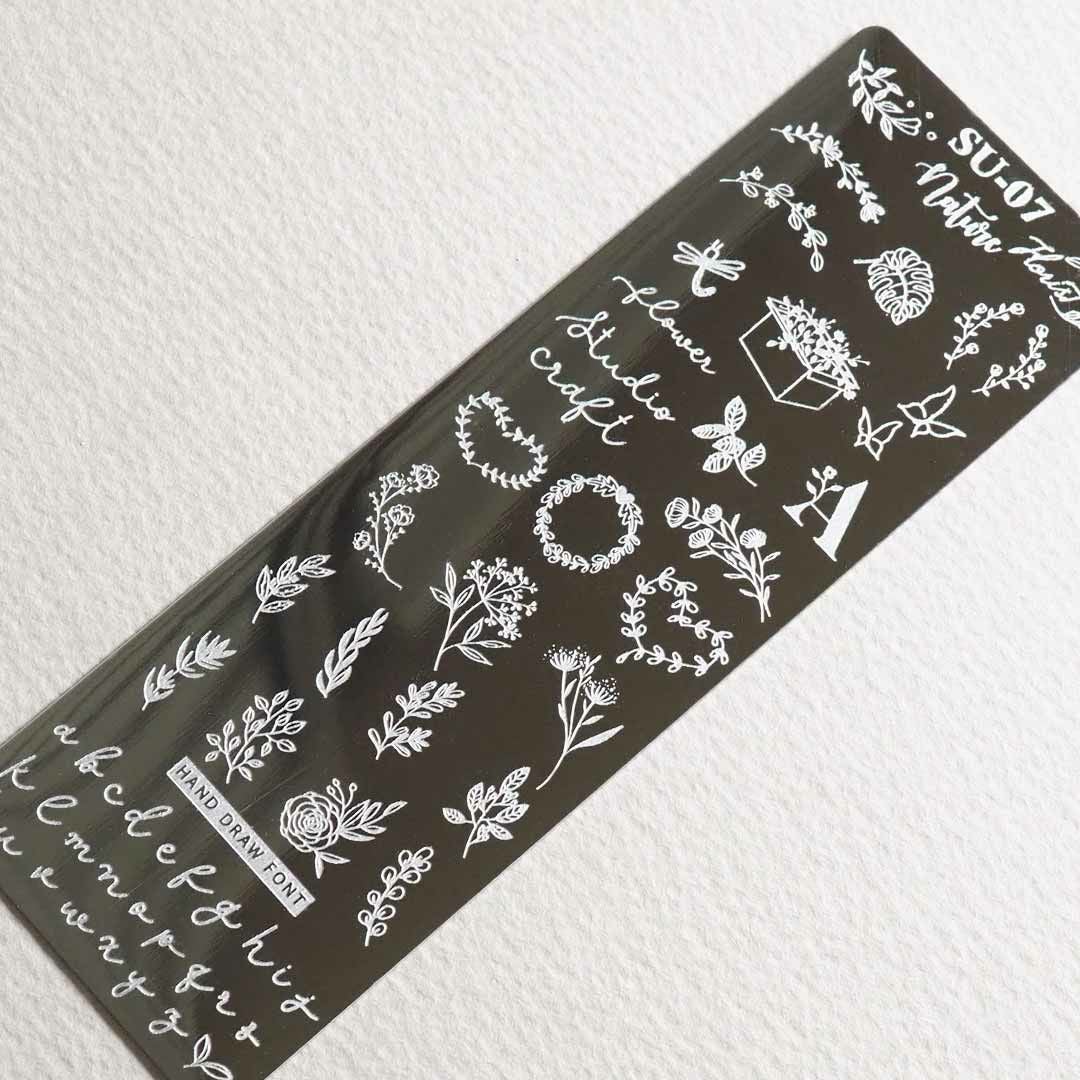 SU-07
Nature Florist
flower
Studio
craft
A
HAND DRAW FONT
a b c d e f g h i j
k l m n o p q r s
u v w x y z